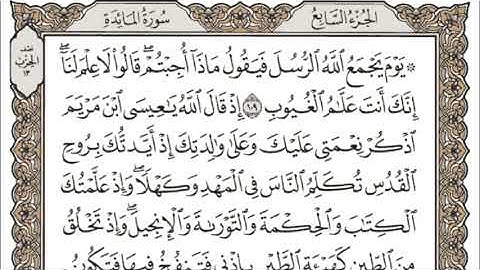 الجزء السابع
سورة المائدة
۞ يَوْمَ يَجْمَعُ ٱللَّهُ ٱلرُّسُلَ فَيَقُولُ مَاذَآ أُجِبْتُمْ ۖ قَالُوا۟ لَا عِلْمَ لَنَآ ۖ
إِنَّكَ أَنتَ عَلَّٰمُ ٱلْغُيُوبِ ١٠٩ إِذْ قَالَ ٱللَّهُ يَٰعِيسَى ٱبْنَ مَرْيَمَ
ٱذْكُرْ نِعْمَتِى عَلَيْكَ وَعَلَىٰ وَٰلِدَتِكَ إِذْ أَيَّدتُّكَ بِرُوحِ
ٱلْقُدُسِ تُكَلِّمُ ٱلنَّاسَ فِى ٱلْمَهْدِ وَكَهْلًا ۖ وَإِذْ عَلَّمْتُكَ
ٱلْكِتَٰبَ وَٱلْحِكْمَةَ وَٱلتَّوْرَىٰةَ وَٱلْإِنجِيلَ ۖ وَإِذْ تَخْلُقُ
مِنَ ٱلطِّينِ كَهَيْـَٔةِ ٱلطَّيْرِ بِإِذْنِى فَتَنفُخُ فِيهَا فَتَكُونُ